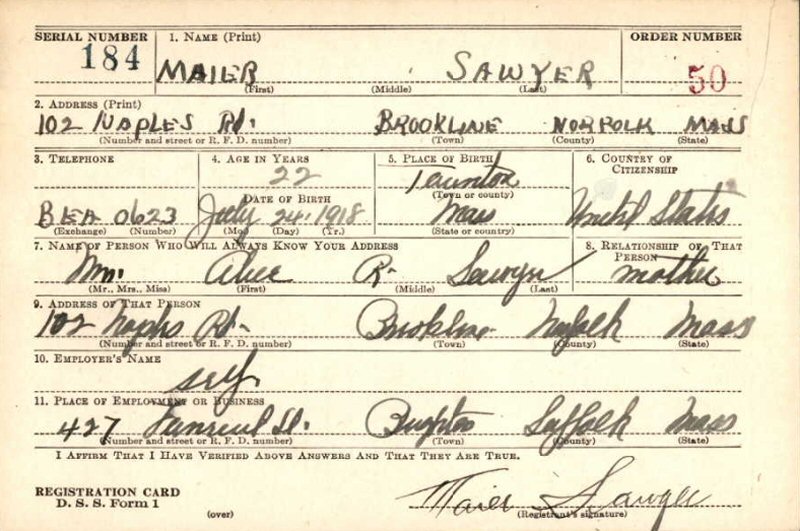 SERIAL NUMBER 1. NAME (Print) ORDER NUMBER
184 MAIER SAWYER 50
(First) (Middle) (Last)
2. ADDRESS (Print)
102 NAPLES Rd. BROOKLINE NORFOLK MASS
(Number and street or R. F. D. number) (Town) (County) (State)
3. TELEPHONE 4. AGE IN YEARS 5. PLACE OF BIRTH 6. COUNTRY OF CITIZENSHIP
22 Taunton
DATE OF BIRTH (Town or county)
BEA 0623 July 24 1918 Mass United States
(Exchange) (Number) (Mo.) (Day) (Yr.) (State or country)
7. NAME OF PERSON WHO WILL ALWAYS KNOW YOUR ADDRESS 8. RELATIONSHIP OF THAT PERSON
Mrs. Alice R. Sawyer mother
(Mr., Mrs., Miss) (First) (Middle) (Last)
9. ADDRESS OF THAT PERSON
102 Naples Rd. Brookline Norfolk Mass
(Number and street or R. F. D. number) (Town) (County) (State)
10. EMPLOYER'S NAME
self
11. PLACE OF EMPLOYMENT OR BUSINESS
427 Brighton Suffolk Mass
(Number and street or R. F. D. number) (Town) (County) (State)
I AFFIRM THAT I HAVE VERIFIED ABOVE ANSWERS AND THAT THEY ARE TRUE.
REGISTRATION CARD
D. S. S. Form 1 Maier Sawyer
(over) (Registrant's signature)